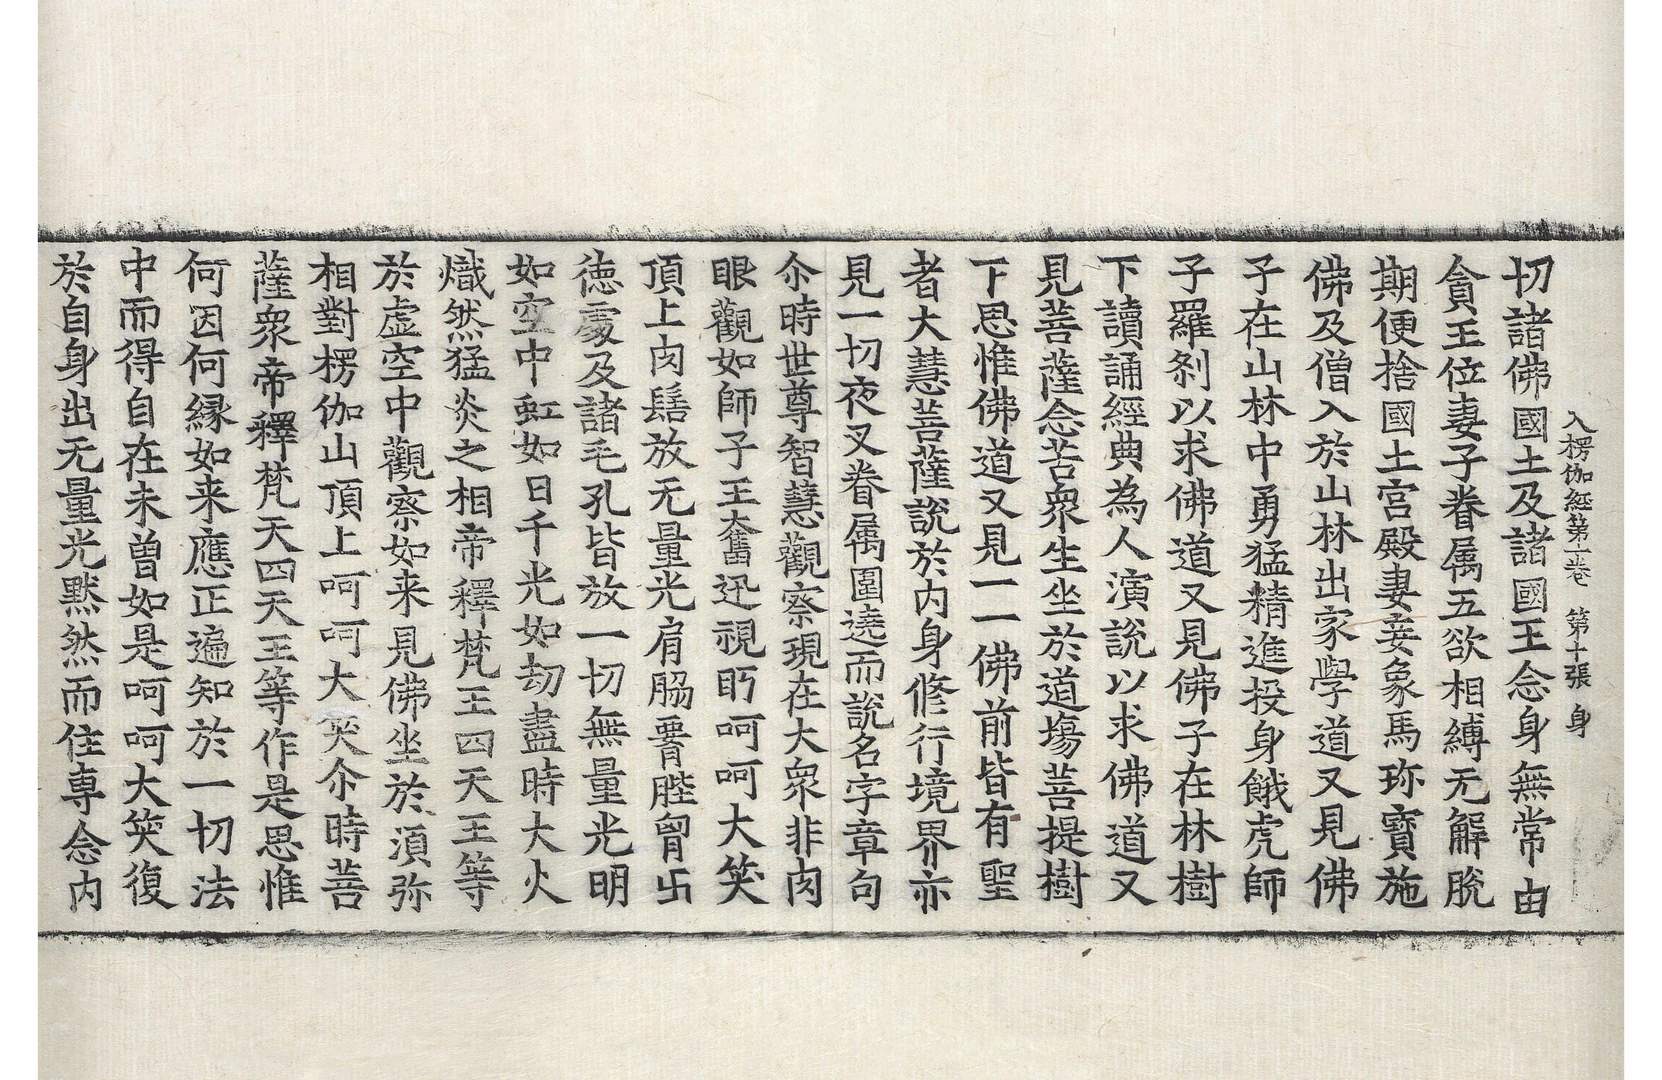 入楞伽經第一卷 第十張 身
切諸佛國土及諸國王念身無常由
貪王位妻子眷属五欲相縛无解脫
期便捨國土宮殿妻妾象馬珎寶施
佛及僧入於山林出家學道又見佛
子在山林中勇猛精進投身餓虎師
子羅剎以求佛道又見佛子在林樹
下讀誦經典為人演說以求佛道又
見菩薩念苦衆生坐於道場菩提樹
下思惟佛道又見一一佛前皆有聖
者大慧菩薩說於內身修行境界亦
見一切夜叉眷属圍遶而說名字章句
尒時世尊智慧觀察現在大衆非肉
眼觀如師子王奮迅視眄呵呵大笑
頂上肉髻放无量光肩脇䏶髀胷卐
德處及諸毛孔皆放一切無量光明
如空中虹如日千光如劫盡時大火
熾然猛炎之相帝釋梵王四天王等
於虛空中觀察如来見佛坐於湏弥
相對楞伽山頂上呵呵大笑尒時菩
薩衆帝釋梵天四天王等作是思惟
何因何縁如来應正遍知於一切法
中而得自在未曾如是呵呵大笑復
於自身出无量光默然而住専念內